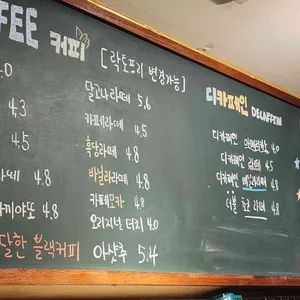 FFEE 커피 [락토프리 변경가능]
.0
4,3
4,5
라떼 4.8
카끼야또 4.8
달한 블랙커피
달고나라떼 5,6
카페라떼 4,5
흑당라떼 4.8
바닐라라떼 4.8
카페모카 4.8
오리지널 더치 4.0
아샷추 5.4
디카페인 DECAFFEIN
디카페인 아메리카노 4.0
디카페인 라떼 4.5
디카페인 바닐라라떼 4.8
더블 초코 라떼 4.8